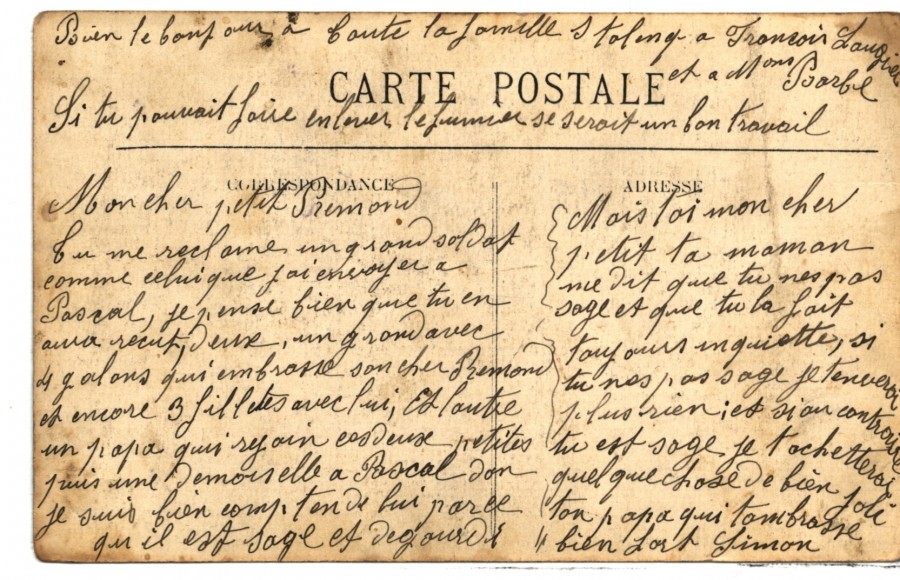 Bien le bonjour a toute la famille Stalenq a Francois Laugier
et a Mons Barbe
CARTE POSTALE
Si tu pouvait faire enlever le fumier se serait un bon travail
CORRESPONDANCE
Mon cher petit Remond
Tu me reclame un grand soldat
comme celui que jai envoyer a
Pascal, je pense bien que tu en
aura recut, deux, un grand avec
4 galons qui embrasse son cher Remond
et encore 3 fillettes avec lui, Et lautre
un papa qui rejoin ces deux petites
puis une demoiselle a Pascal don
je suis bien comptend de lui parce
qu il est sage et degourdi
ADRESSE
Mais toi mon cher
petit ta maman
me dit que tu nes pas
sage et que tu la fait
toujours inquiette, si
tu nes pas sage je tenverai
plus rien; et si au contraire
tu est sage je tachetterai
quelque chose de bien joli
ton papa qui tambrasse
" bien fort Simon